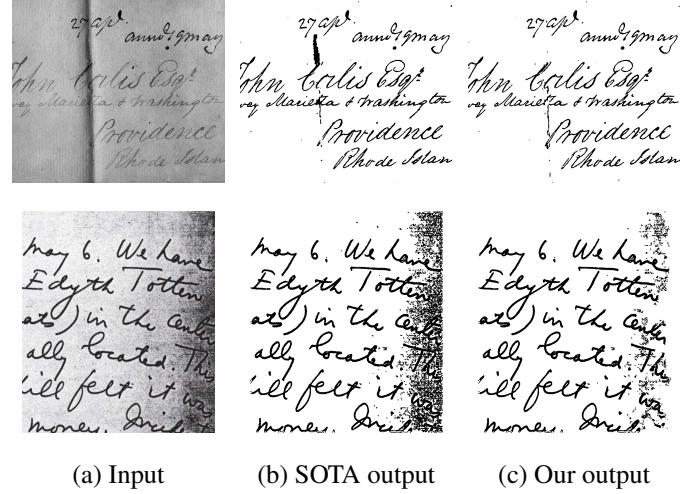 27 apl.
19 may
John Corlis Esqr.
Marietta & Washington
Providence
Rhode Islan
27 apl.
19 may
John Corlis Esqr.
Marietta & Washington
Providence
Rhode Islan
27 apl.
19 may
John Corlis Esqr.
Marietta & Washington
Providence
Rhode Islan
may 6. We have
Edyth Totten
ats) in the center
ally located. The
ill felt it was
money.
may 6. We have
Edyth Totten
ats) in the center
ally located. The
ill felt it was
money.
may 6. We have
Edyth Totten
ats) in the center
ally located. The
ill felt it was
money.
(a) Input
(b) SOTA output
(c) Our output